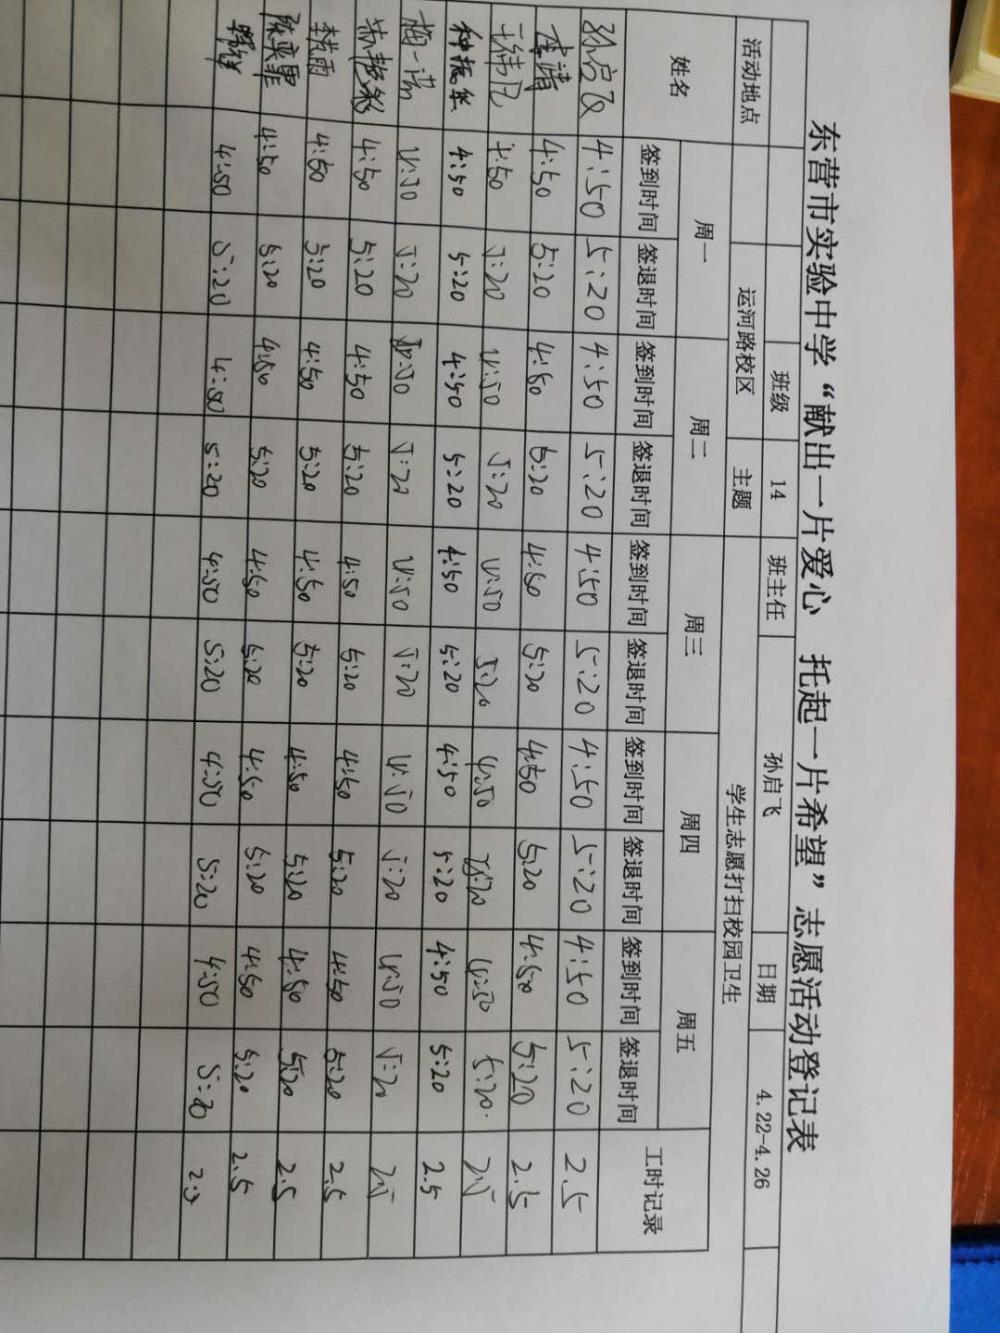 东营市实验中学“献出一片爱心 托起一片希望”志愿活动登记表
班级 14 班主任 孙启飞 日期 4.22-4.26
活动地点 运河路校区 主题 学生志愿打扫校园卫生
姓名 周一 周二 周三 周四 周五 工时记录
签到时间 签退时间 签到时间 签退时间 签到时间 签退时间 签到时间 签退时间 签到时间 签退时间
孙启飞 4:50 5:20 4:50 5:20 4:50 5:20 4:50 5:20 4:50 5:20 2.5
李靖 4:50 5:20 4:50 5:20 4:50 5:20 4:50 5:20 4:50 5:20 2.5
4:50 5:20 4:50 5:20 4:50 5:20 4:50 5:20 4:50 5:20. 2.5
种振华 4:50 5:20 4:50 5:20 4:50 5:20 4:50 5:20 4:50 5:20 2.5
梅一诺 4:50 5:20 4:50 5:20 4:50 5:20 4:50 5:20 4:50 5:20 2.5
4:50 5:20 4:50 5:20 4:50 5:20 4:50 5:20 4:50 5:20 2.5
4:50 5:20 4:50 5:20 4:50 5:20 4:50 5:20 4:50 5:20 2.5
陈奕霏 4:50 5:20 4:50 5:20 4:50 5:20 4:50 5:20 4:50 5:20 2.5
4:50 5:20 4:50 5:20 4:50 5:20 4:50 5:20 4:50 5:20 2.5